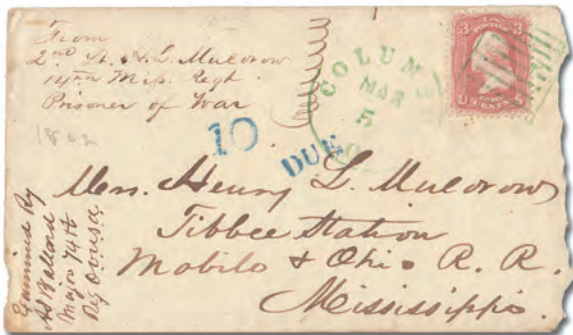 From
2nd Lt. H. L. Muldrow
14th Miss. Regt.
Prisoner of War
1862
10
DUE
COLUM
MAR
5
O
3 3
U CENTS
Mrs. Henry L. Muldrow
Tibbee Station
Mobile & Ohio R. R.
Mississippi.
Examined By
Ballard
Major 74th
Reg O.V.USA